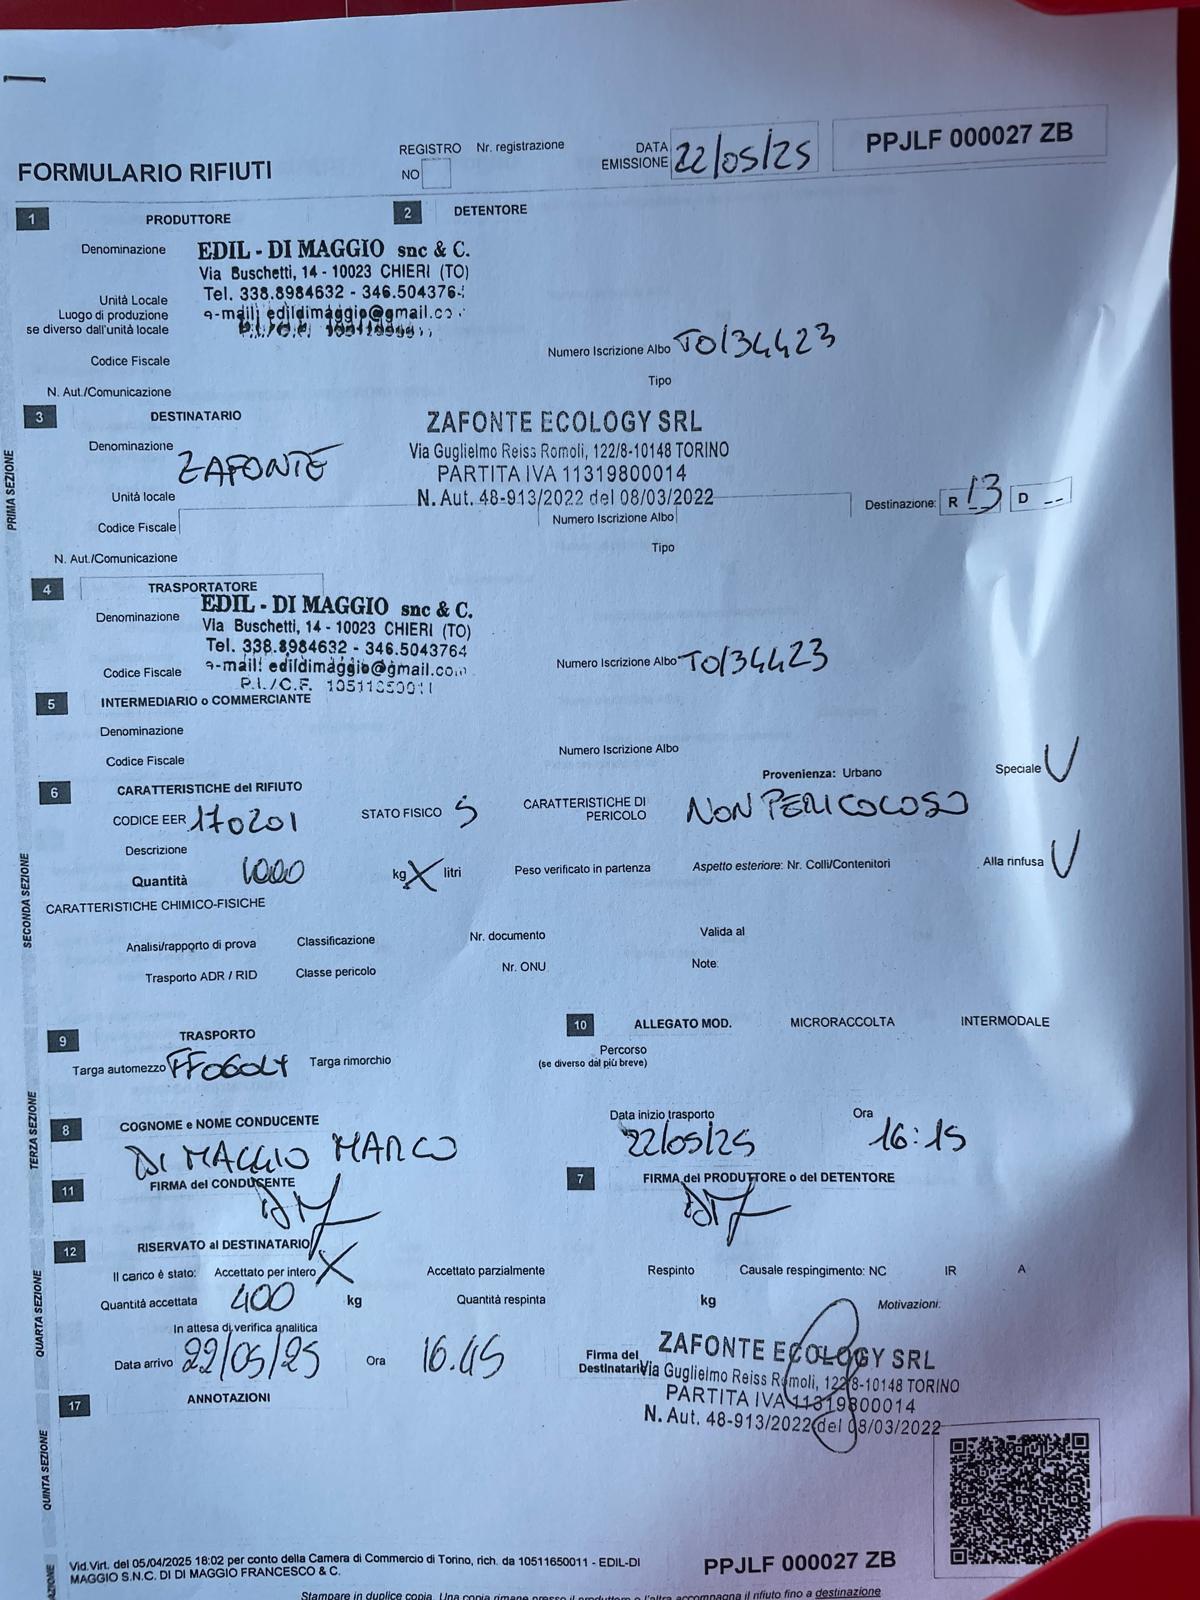 FORMULARIO RIFIUTI
REGISTRO Nr. registrazione
NO
DATA EMISSIONE 22/05/25
PPJLF 000027 ZB
1 PRODUTTORE
2 DETENTORE
Denominazione EDIL - DI MAGGIO snc & C.
Via Buschetti, 14 - 10023 CHIERI (TO)
Unità Locale Tel. 338.8984632 - 346.504376
Luogo di produzione e-mail: edildimaggio@gmail.co
se diverso dall'unità locale P.I./C.F.
Codice Fiscale
Numero Iscrizione Albo TO/34423
Tipo
N. Aut./Comunicazione
PRIMA SEZIONE
3 DESTINATARIO
ZAFONTE ECOLOGY SRL
Denominazione ZAFONTE
Via Guglielmo Reiss Romoli, 122/8-10148 TORINO
PARTITA IVA 11319800014
Unità locale
N. Aut. 48-913/2022 del 08/03/2022
Destinazione: R 13 D _ _
Codice Fiscale
Numero Iscrizione Albo
N. Aut./Comunicazione
Tipo
4 TRASPORTATORE
Denominazione EDIL - DI MAGGIO snc & C.
Via Buschetti, 14 - 10023 CHIERI (TO)
Tel. 338.8984632 - 346.5043764
Codice Fiscale e-mail: edildimaggio@gmail.com
P.I./C.F.
Numero Iscrizione Albo TO/34423
5 INTERMEDIARIO o COMMERCIANTE
Denominazione
Codice Fiscale
Numero Iscrizione Albo
SECONDA SEZIONE
6 CARATTERISTICHE del RIFIUTO
Provenienza: Urbano
Speciale V
CODICE EER 170201
STATO FISICO S
CARATTERISTICHE DI PERICOLO NON PERICOLOSO
Descrizione
Quantità 1000 kg X litri
Peso verificato in partenza
Aspetto esteriore: Nr. Colli/Contenitori
Alla rinfusa V
CARATTERISTICHE CHIMICO-FISICHE
Analisi/rapporto di prova Classificazione Nr. documento Valida al
Trasporto ADR / RID Classe pericolo Nr. ONU Note:
TERZA SEZIONE
9 TRASPORTO
10 ALLEGATO MOD. MICRORACCOLTA INTERMODALE
Targa automezzo Targa rimorchio
Percorso
(se diverso dal più breve)
8 COGNOME e NOME CONDUCENTE
DI MAGGIO MARCO
Data inizio trasporto 22/05/25
Ora 16:15
11 FIRMA del CONDUCENTE
7 FIRMA del PRODUTTORE o del DETENTORE
QUARTA SEZIONE
12 RISERVATO al DESTINATARIO
Il carico è stato: Accettato per intero X Accettato parzialmente Respinto Causale respingimento: NC IR A
Quantità accettata 400 kg Quantità respinta kg Motivazioni:
In attesa di verifica analitica
Data arrivo 22/05/25 Ora 16.45
Firma del Destinatario
ZAFONTE ECOLOGY SRL
Via Guglielmo Reiss Romoli, 122/8-10148 TORINO
PARTITA IVA 11319800014
N. Aut. 48-913/2022 del 08/03/2022
QUINTA SEZIONE
17 ANNOTAZIONI
Vid.Virt. del 05/04/2025 18:02 per conto della Camera di Commercio di Torino, rich. da 10511650011 - EDIL-DI
MAGGIO S.N.C. DI DI MAGGIO FRANCESCO & C.
PPJLF 000027 ZB
Stampare in duplice copia. Una copia rimane presso il produttore o l'altra accompagna il rifiuto fino a destinazione